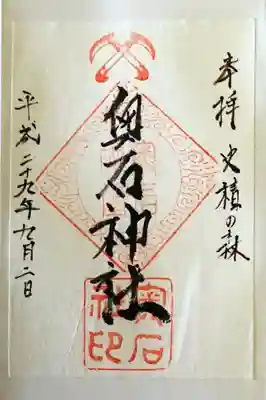 奉拝 史植の森
奥石神社
平成二十九年九月二日
奥石
社印